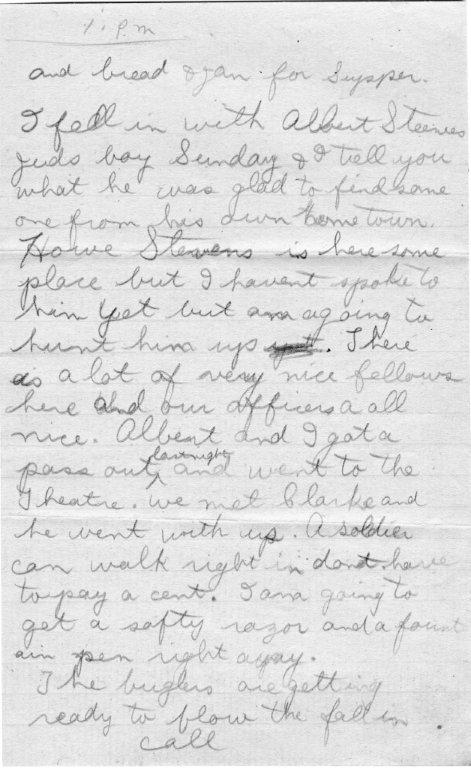 1. P.M
and bread & jan for Supper.
I fell in with Albert Steeves
Juds boy Sunday & I tell you
what he was glad to find some
one from his own home town.
Howe Stevens is here some
place but I havent spoke to
him yet but am agoing to
hunt him up. There
is a lot of very nice fellows
here and our officers a all
nice. Albert and I got a
pass out last night and went to the
Theatre. we met Clarke and
he went with us. A soldier
can walk right in dont have
to pay a cent. I am going to
get a safty razor and a fount
ain pen right away.
The buglers are getting
ready to blow the fall in
call